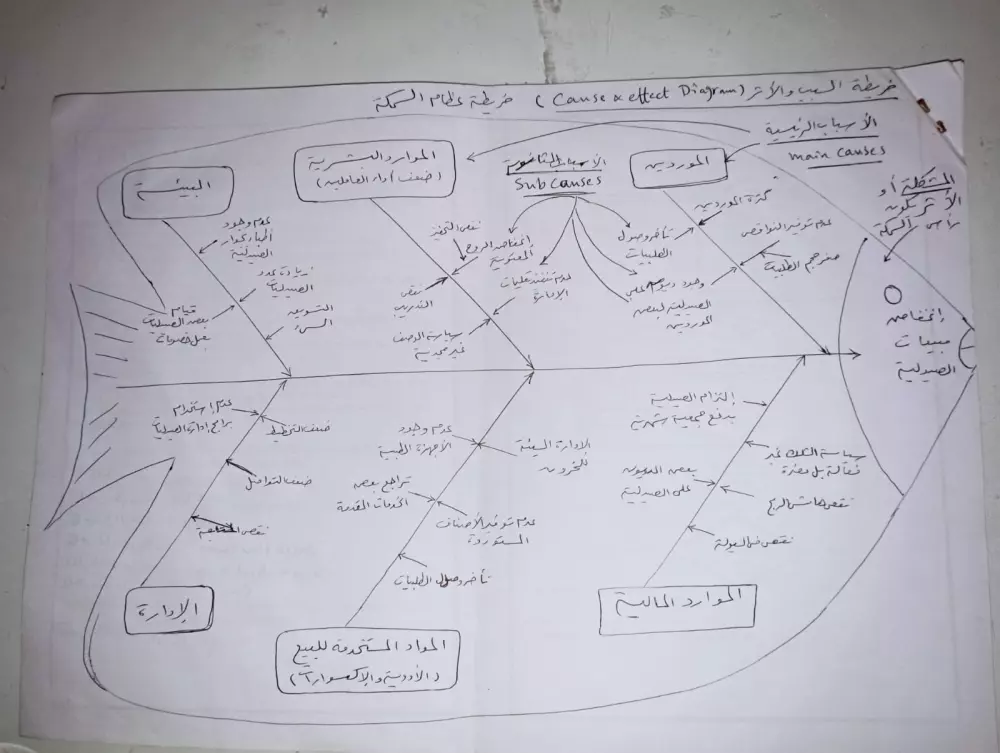 خريطة السبب والأثر (Cause & effect Diagram) خريطة عظام السمكة
الأسباب الرئيسية
main causes
المشكلة أو
الأثر يكون
رأس السمكة
البيئة
الموارد البشرية
(ضعف أداء العاملين)
الأسباب الثانوية
Sub causes
الموردين
عدم وجود
أطباء بجوار
الصيدلية
زيادة عدد
الصيدليات
التسويق
السيء
قيام
بعض الصيدليات
بعمل خصومات
نقص التحفيز
إنخفاض الروح
المعنوية
نقص
التدريب
عدم تنفيذ تعليمات
الإدارة
سياسة الوصف
غير مجدية
كثرة الموردين
تأخر وصول
الطلبيات
عدم توفير النواقص
صغر حجم الطلبيات
وجود ديون على
الصيدلية لبعض
الموردين
إنخفاض
مبيعات
الصيدلية
عدم إستخدام
برامج إدارة الصيدليات
ضعف التخطيط
ضعف التواصل
نقص المتابعة
الإدارة
عدم وجود
الأجهزة الطبية
الإدارة السيئة
للمخزون
تراجع بعض
الخدمات المقدمة
عدم توفير الأصناف
المستوردة
تأخر وصول الطلبيات
المواد المستخدمة للبيع
(الأدوية والإكسسوارات)
إلتزام الصيدلية
بدفع جمعية شهرية
سياسة غير
فعالة بل مضرة
بعض الديون
على الصيدلية
نقص هامش الربح
نقص في السيولة
الموارد المالية